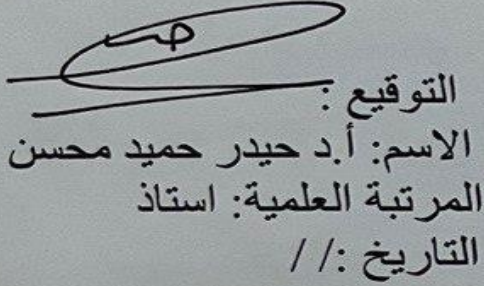 التوقيع :
الاسم: أ.د حيدر حميد محسن
المرتبة العلمية: استاذ
التاريخ :/ /